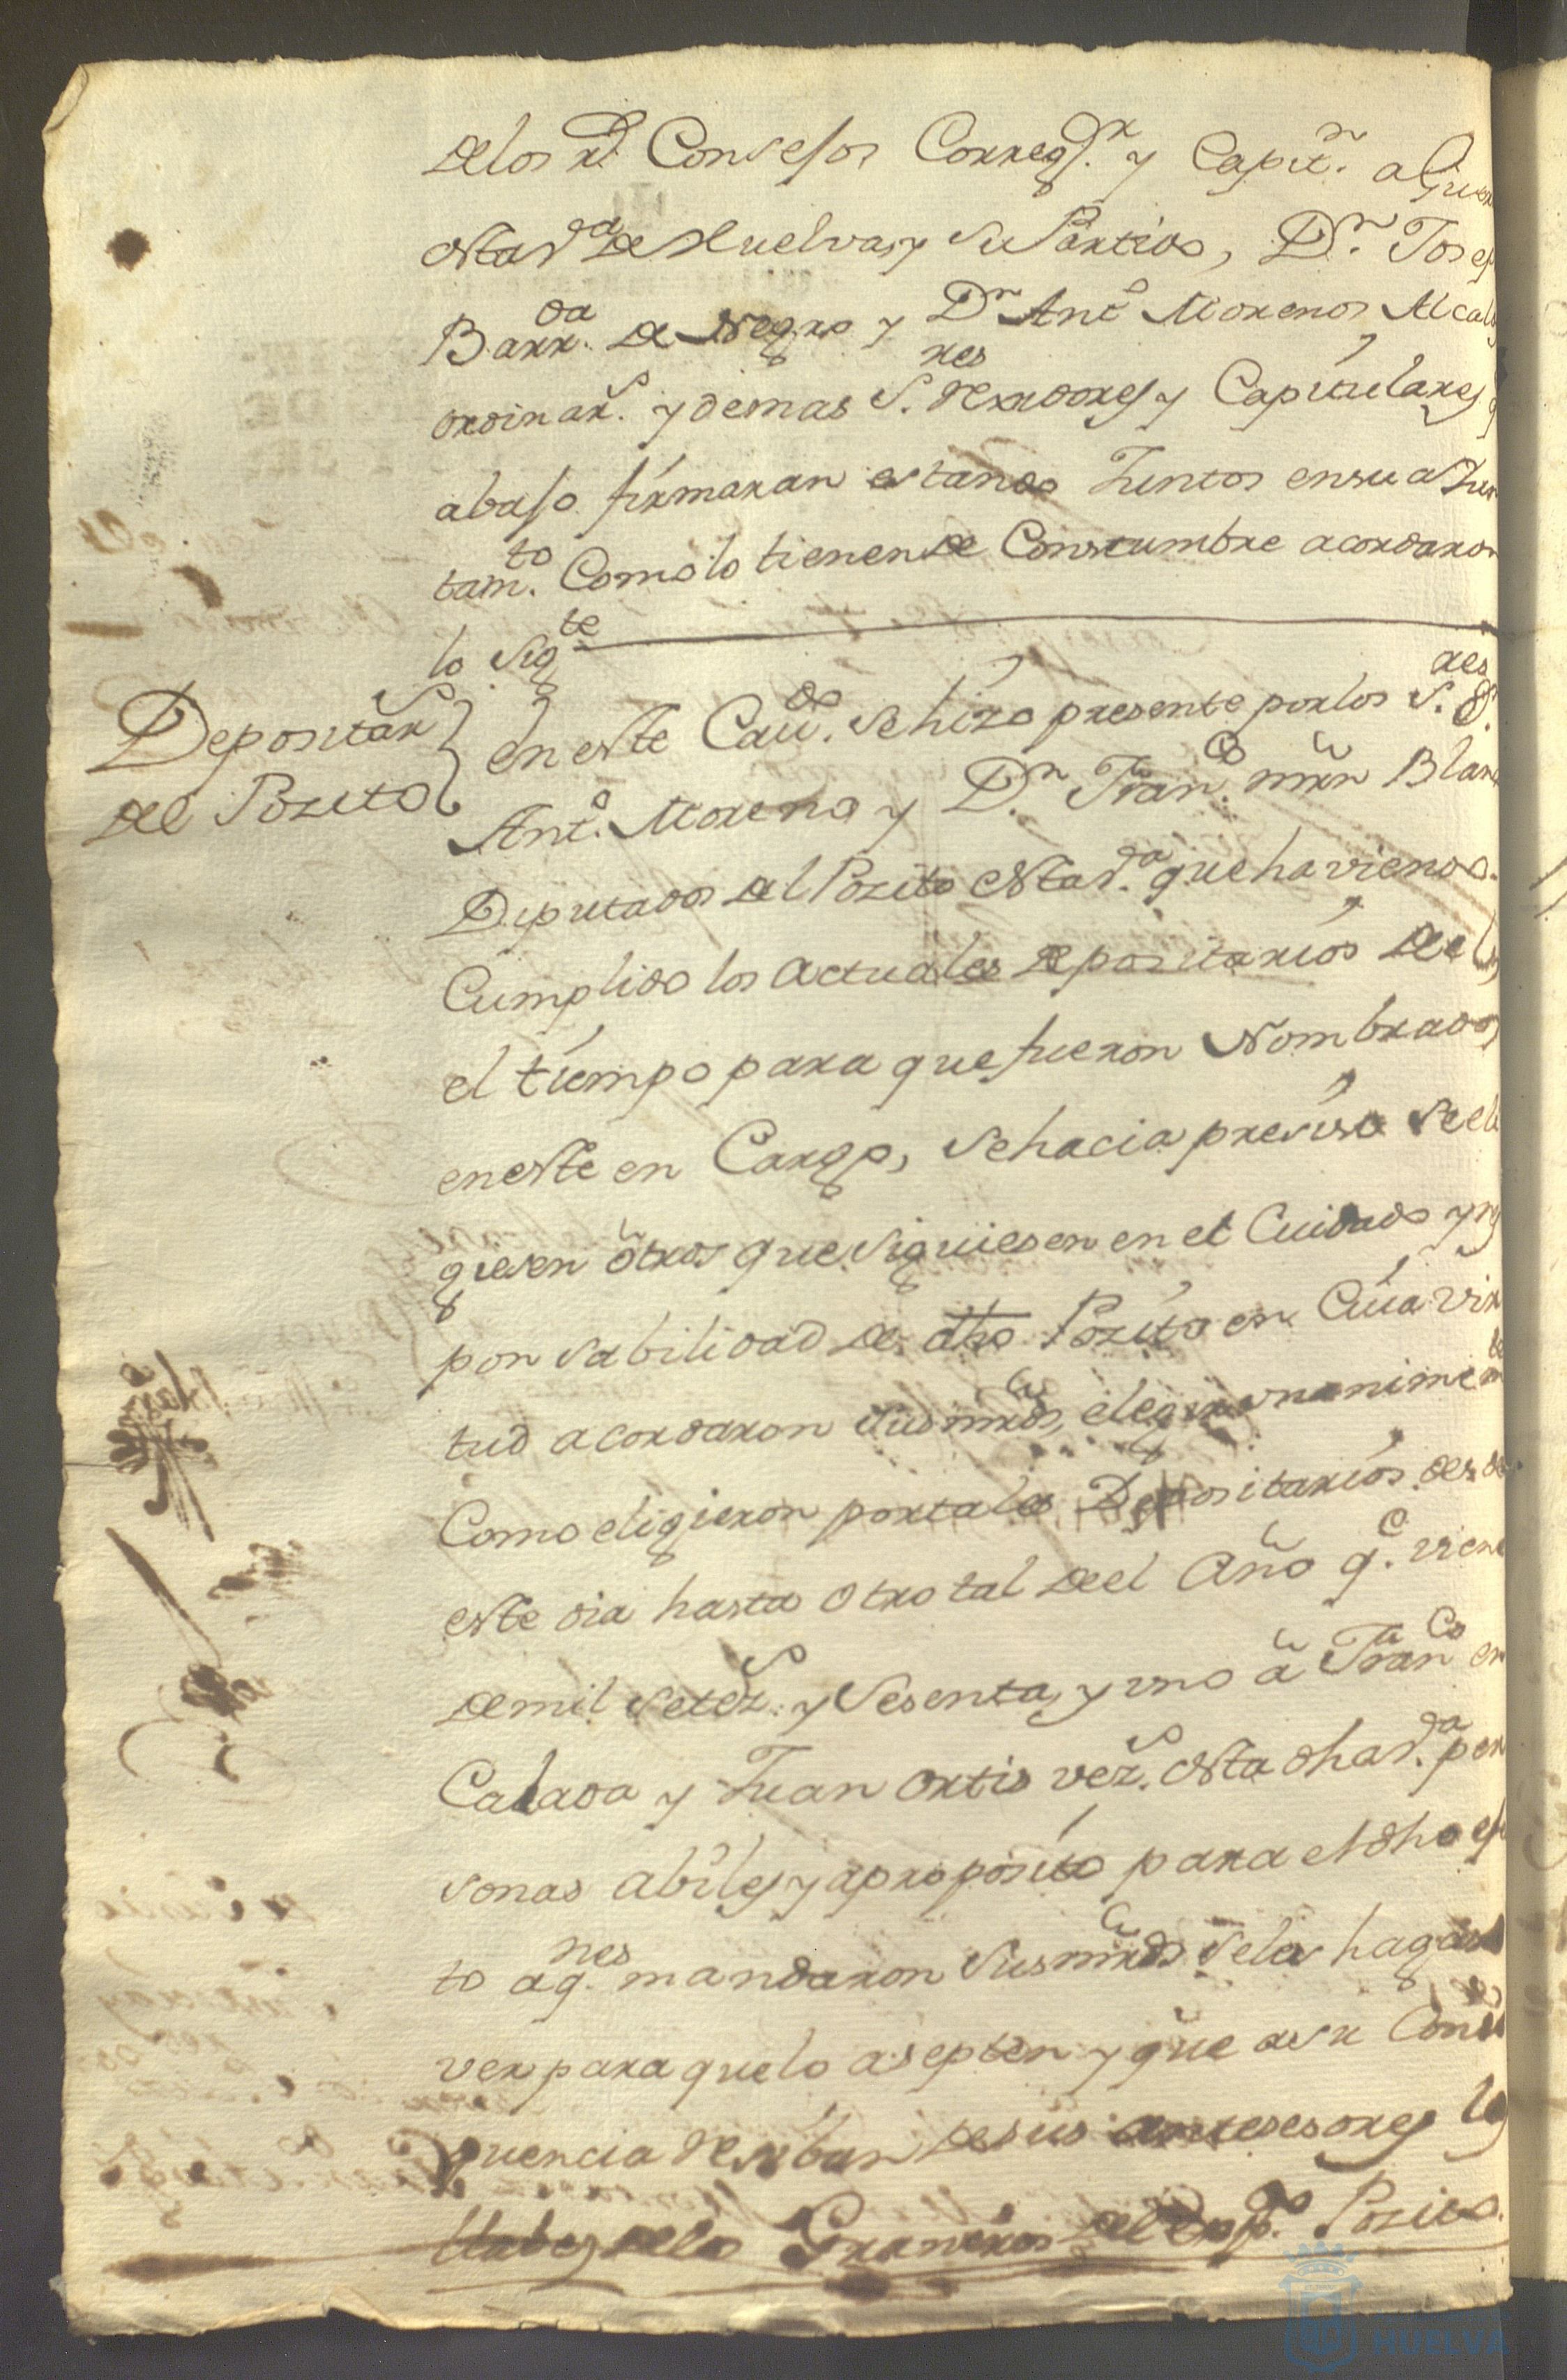 delos R.ˢ Consejos Correg.ʳ y Capit.ⁿ a Guerra
esta v.ᵃ de Huelva, y su Partido, D.ⁿ Josef
Barr.ᵈᵃ de Negro y D.ⁿ Ant.º Moreno, Alcald
ordinar.ˢ y demas S.ʳᵉˢ Rexidores y Capitulares q
abajo firmaran estando Juntos en su aJun
tam.ᵗᵒ Como lo tienen de Constumbre acordaron
lo sig.ᵗᵉ
Depositar.ˢ
del Pozito
en este Cavi.ᵈᵒ se hizo presente por los S.ʳᵉˢ D.ⁿ
Ant.º Moreno y D.ⁿ Fran.ᶜᵒ mrn Blan
Diputados del Pozito esta v.ᵃ que haviendo
Cumplido los actuales depositarios de el
el tiempo para que fueron Nombrados
en este en Cargo, se hacia presiso se eli
giesen otros que siguiesen en el Cuidado y res
ponsabilidad de dho Pozito en Cuia vir
tud acordaron sus mrds, elegir unanimem.ᵗᵉ
Como eligieron por tales Depositarios desde
este dia hasta otro tal de el Año q.ᵉ viene
de mil setez.ˢ y sesenta, y uno a Fran.ᶜᵒ en
Calada y Juan Ortis vez.ˢ esta dha v.ᵃ per
sonas abiles y aproposito para el dho efe
to a q.ⁿᵉˢ mandaron sus mrds se les haga
ver para que lo asepten y que a su Conse
quencia resiban de sus antesesores las
llabes de los Graneros del Exp.ᵈᵒ Posito.
HUELVA